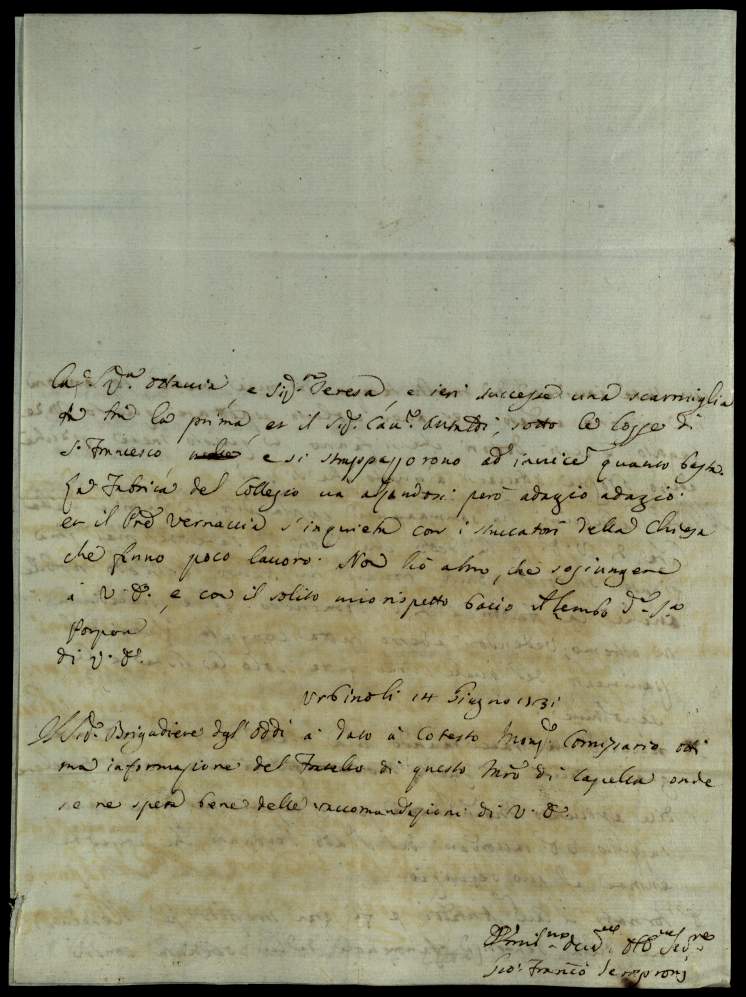 la Sig.ra Ottavia, e Sig.ra Teresa, e ieri successe una scarmiglia
ta trà la prima, et il Sig.r Cau.r Antaldi, sotto le logge di
S. Francesco, e si strappazzorono ad' inuicē quanto basta.
La Fabrica del Collegio ua alzandosi però adagio adagio.
et il Prē Vernaccia s'inquieta con i stuccatori della Chiesa
che fanno poco lauoro. Non hò altro, che sogiungere
à V. E., e con il solito mio rispetto bacio il lembo d. sa
Porpora
di V. E.
Urbino li 14 Giugno 1731
Il Sig.r Brigadiere degl' Oddi à dato à cotesto Mons.r Comisario otti
ma informazione del Fratello di questo Mrō di Capella onde
se ne spera bene delle raccomandazioni di V. E.
Vmil.mo Deu.mo Obb. Ser.re
Gio: Francō Semproni